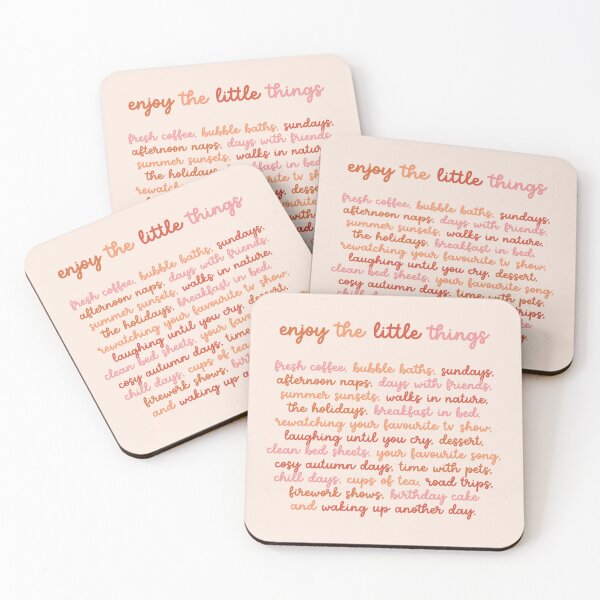 enjoy the little things
fresh coffee, bubble baths, sundays,
afternoon naps, days with friends
summer sunsets, walks in nature
the holidays, breakfast in bed,
rewatching
dessert,
road
enjoy the little things
fresh coffee, bubble baths, sundays,
afternoon naps, days with friends,
summer sunsets, walks in nature,
the holidays, breakfast in bed,
rewatching your favourite tv show,
laughing until you cry, dessert,
clean bed sheets, your favourite song,
cosy autumn days, time with pets,
trips,
enjoy the little things
fresh coffee, bubble baths, sundays,
afternoon naps, days with friends,
summer sunsets, walks in nature,
the holidays, breakfast in bed,
rewatching your favourite tv show,
laughing until you cry, dessert,
clean bed sheets, your
cosy autumn days, time
chill days, cups of tea,
firework shows,
and waking up
enjoy the little things
fresh coffee, bubble baths, sundays,
afternoon naps, days with friends,
summer sunsets, walks in nature,
the holidays, breakfast in bed,
rewatching your favourite tv show,
laughing until you cry, dessert,
clean bed sheets, your favourite song,
cosy autumn days, time with pets,
chill days, cups of tea, road trips,
firework shows, birthday cake
and waking up another day.